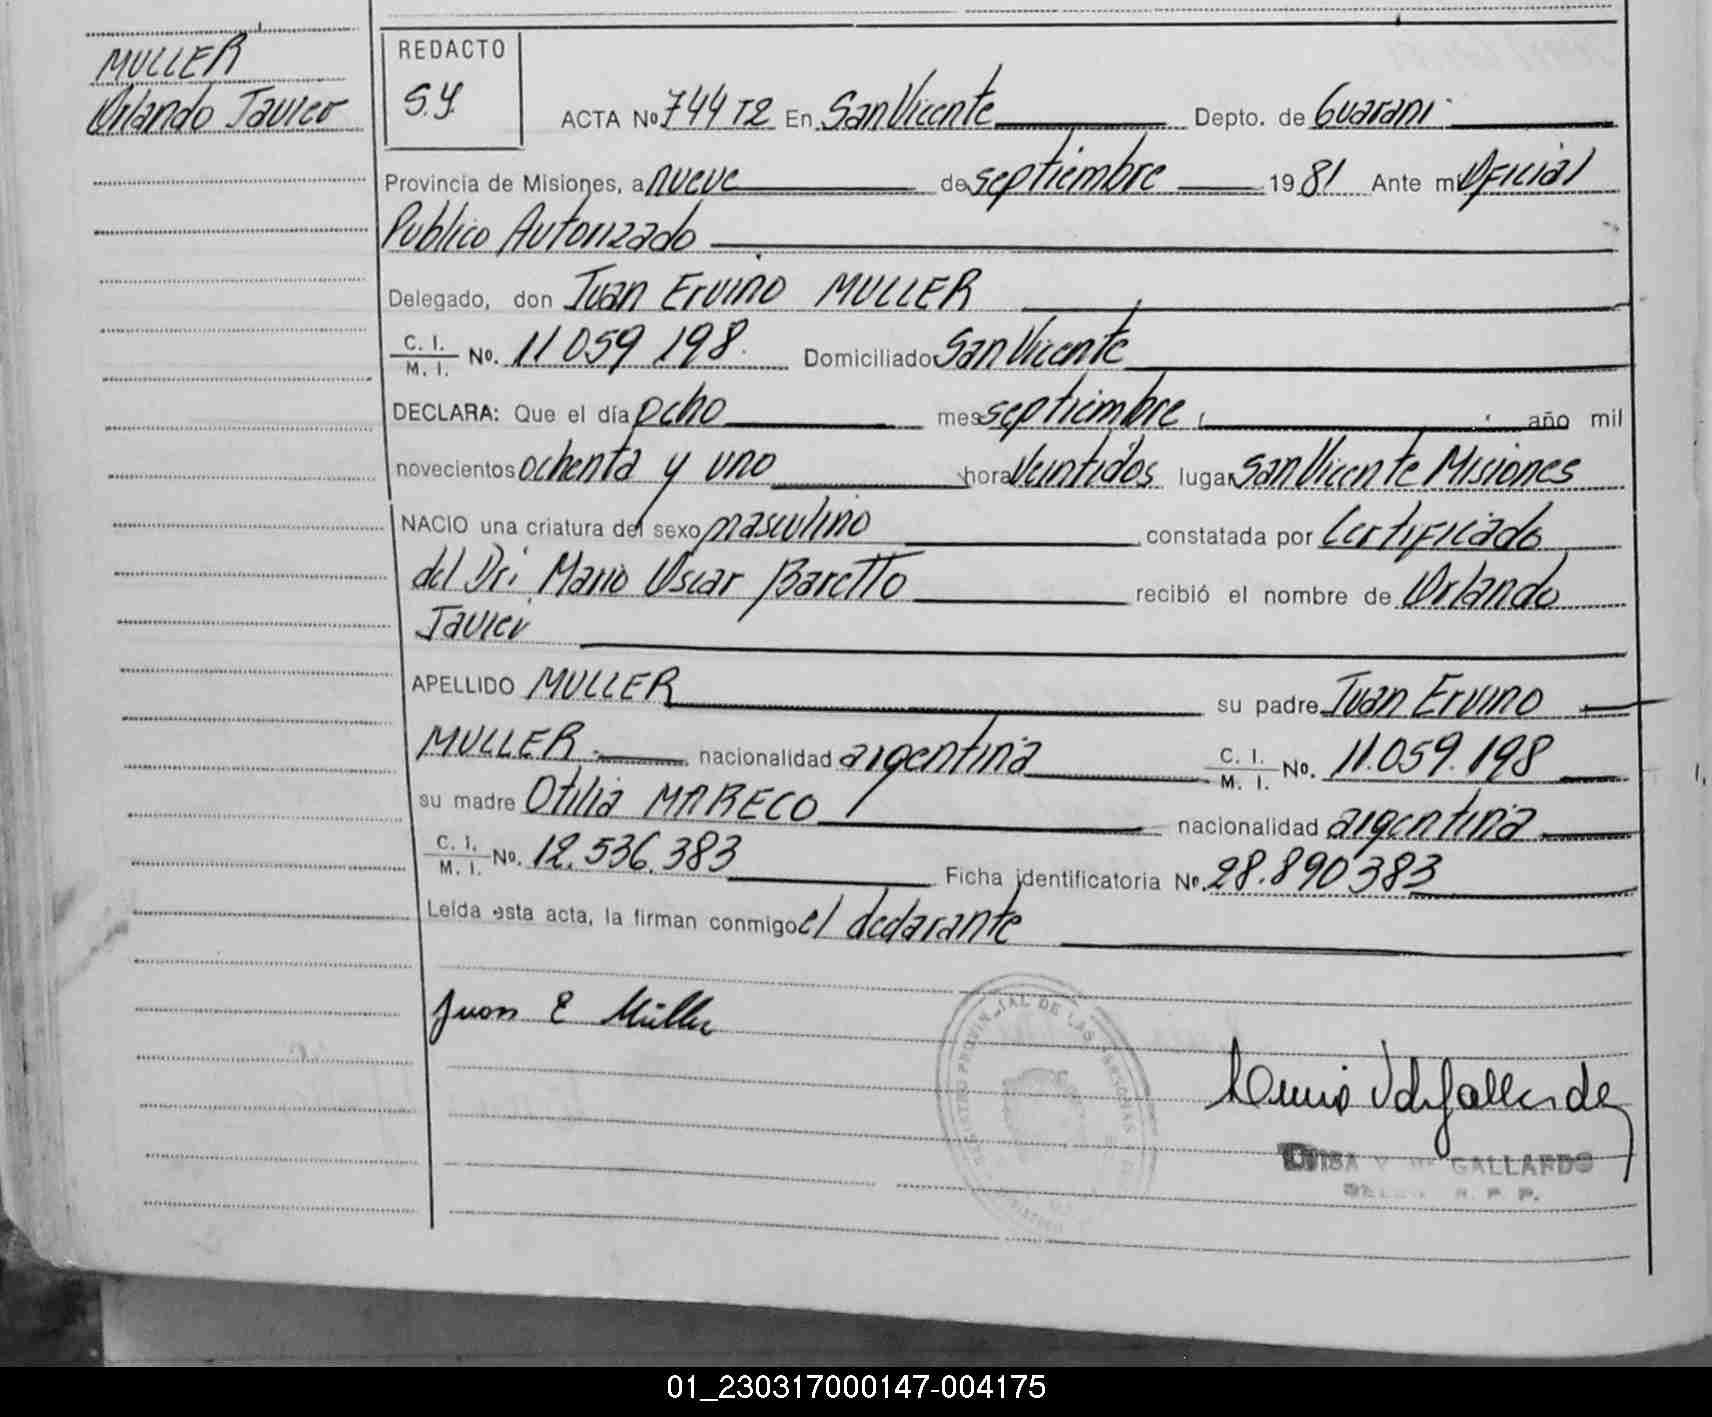 MULLER
Orlando Javier
REDACTO
S.Y.
ACTA No 744 T2 En San Vicente Depto. de Guaraní
Provincia de Misiones, a nueve de septiembre 1981 Ante mi Oficial
Publico Autorizado
Delegado, don Juan Ervino MULLER
C. I.
M. I. No. 11 059 198. Domiciliado San Vicente
DECLARA: Que el día ocho mes septiembre año mil
novecientos ochenta y uno hora veintidos lugar San Vicente Misiones
NACIO una criatura del sexo masculino constatada por Certificado
del Dr: Mario Oscar Baretto recibió el nombre de Orlando
Javier
APELLIDO MULLER su padre Juan Ervino
MULLER nacionalidad argentina C. I.
M. I. No. 11.059.198
su madre Otilia MARECO nacionalidad argentina
C. I.
M. I. No. 12.536.383 Ficha identificatoria No. 28.890 383
Leída esta acta, la firman conmigo el declarante
Juan E Müller
REGISTRO PROVINCIAL DE LAS PERSONAS
GALLARDO
01_230317000147-004175